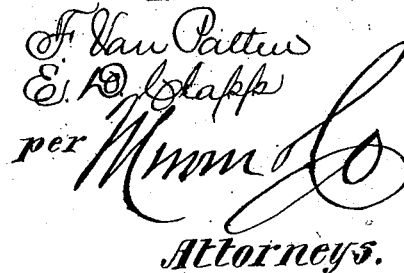 F. Van Patten
E. D. Clapp
per Munn & Co
Attorneys.